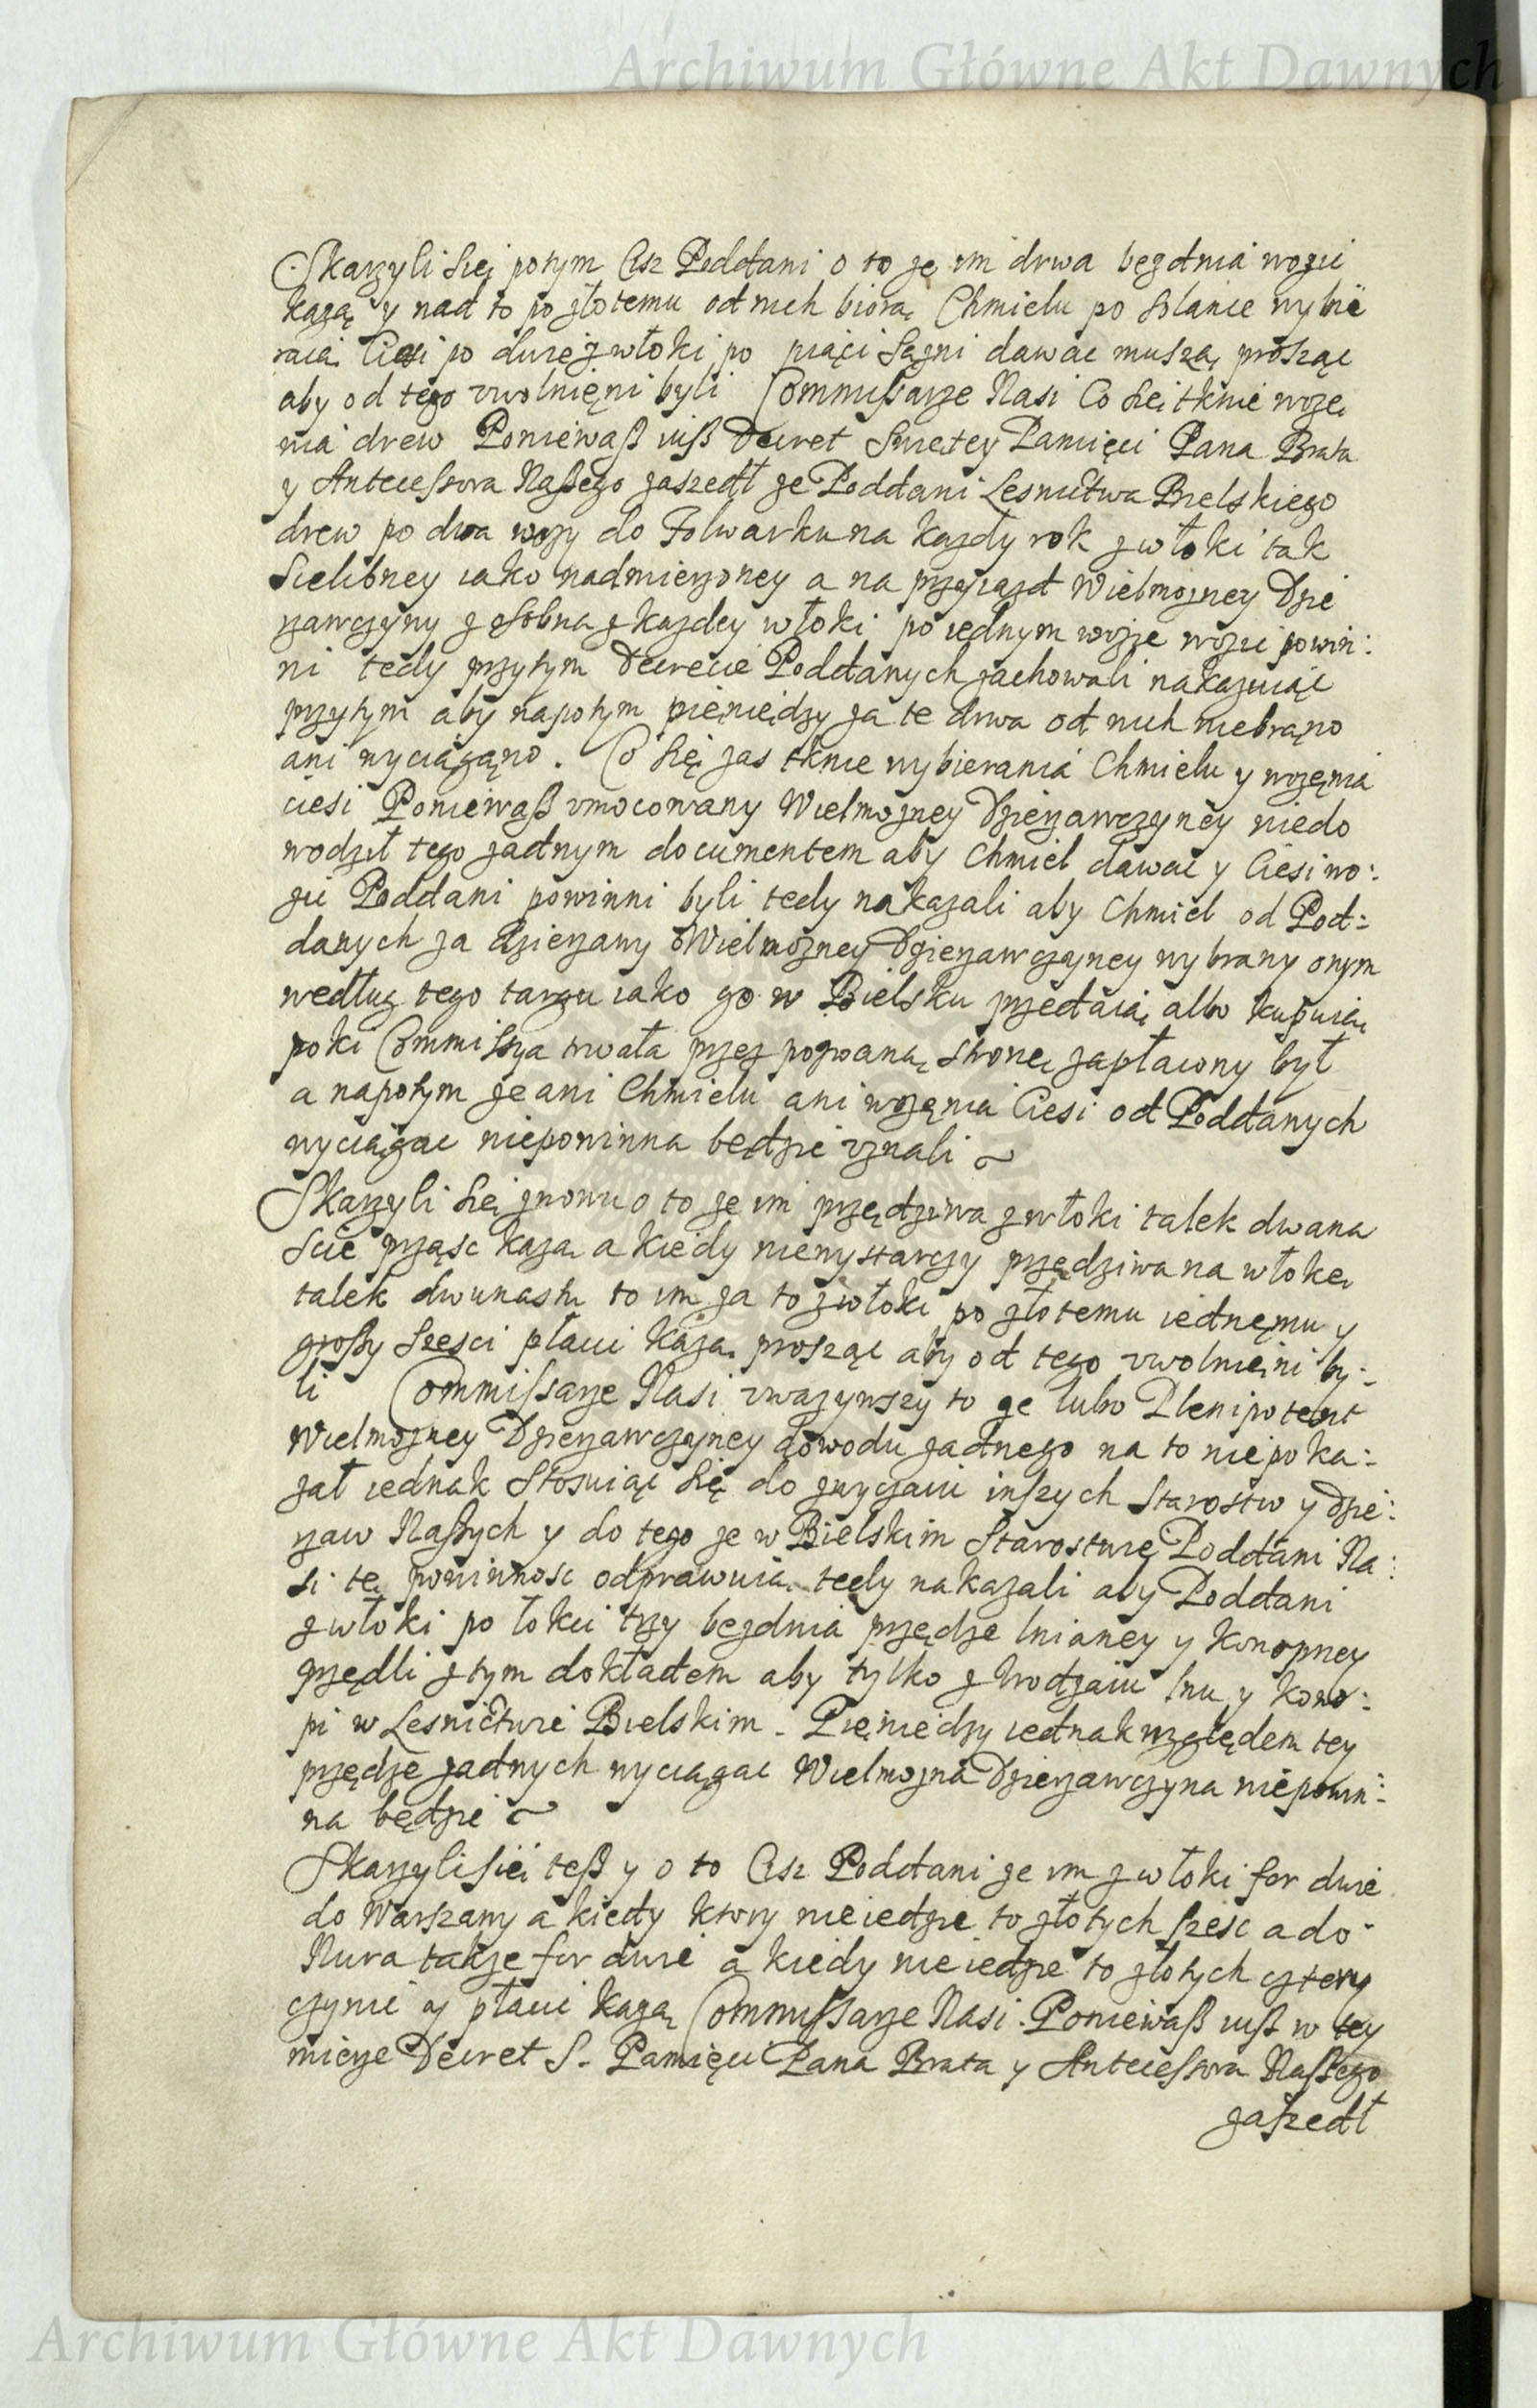 Archiwum Główne Akt Dawnych
Skarzyli Się potym Cisz Poddani o to ze im drwa bęzdnia wozic
kazą y nad to po złotemu od nich biorą Chmielu po solance wybie
raią Ciesi po dwie z włoki po pięci Sązni dawac muszą prosząc
aby od tego vwolnięni byli Commissarze Nasi Co Się tknie wozę
nia drew Poniewaß iuß Decret Swiętey Pamięci Pana Brata
y Antecessora Naßego zaszedł ze Poddani Lesnictwa Bielskiego
drew po dwa wozy do Folwarku na kazdy rok z włoki tak
Sielibney iako nadmierzoney a na przyiazd Wielmozney Dzie
rzawczyny z osobna z kazdey włoki po iednym wozie wozic powin:
ni tedy przytym Decrecie Poddanych zachowali nakazuiąc
przytym aby napotym pięniędzy za te drwa od nich niebrąno
ani wyciągąno. Co Się zas tknie wybierania Chmielu y wozęnia
ciesi Poniewaß vmocowany Wielmozney Dzierzawczyney niedo
wodził tego zadnym documentem aby Chmiel dawac y Ciesi wo:
zic Poddani powinni byli tedy nakazali aby Chmiel od Pod:
danych za dzierzawy Wielmozney Dzierzawczyney wybrany onym
według tego targu iako go w Bielsku przedaią albo kupuią
poki Commissya trwała przez pozwaną stronę zapłacony był
a napotym ze ani Chmielu ani wozęnia Ciesi od Poddanych
wyciągac niepowinna będzie vznali ~
Skarzyli Się znowu o to ze im przędziwa z włoki talek dwana
scie prząsc kazą a kiedy niewystarczy przędziwa na włokę
talek dwunastu to im za to z włoki po złotemu iednęmu y
groszy szesci płacic kazą prosząc aby od tego vwolnieni by:
li Commissarze Nasi vwazywszy to ze lubo Plenipotent
Wielmozney Dzierzawczyney dowodu zadnego na to niepoka:
zał iednak Stosuiąc Się do zwyczaiu inszych Starostw y Dzie:
rzaw Naßych y do tego ze w Bielskim Starostwie Poddani Na:
si tę powinnosc odprawuią tedy nakazali aby Poddani
z włoki po łokci trzy bezdnia przędze lnianey y konopney
przędli z tym dokładem aby tylko z Vrodzaiu lnu y kono:
pi w Lesnictwie Bielskim. Pięniędzy iednak względem tey
przędze zadnych wyciągac Wielmozna Dzierzawczyna niepowin:
na będzie ~
Skarzyli się teß y o to Cisz Poddani ze im z włoki for dwie
do Warszawy a kiedy ktory nieiedzie to złotych szesc a do
Nura takze for dwie a kiedy nie iedzie to złotych cztery
czynic y płacic kazą Commissarze Nasi. Poniewaß iuß w tey
mierze Decret S. Pamięci Pana Brata y Antecessora Naßego
zaszedł
Archiwum Główne Akt Dawnych